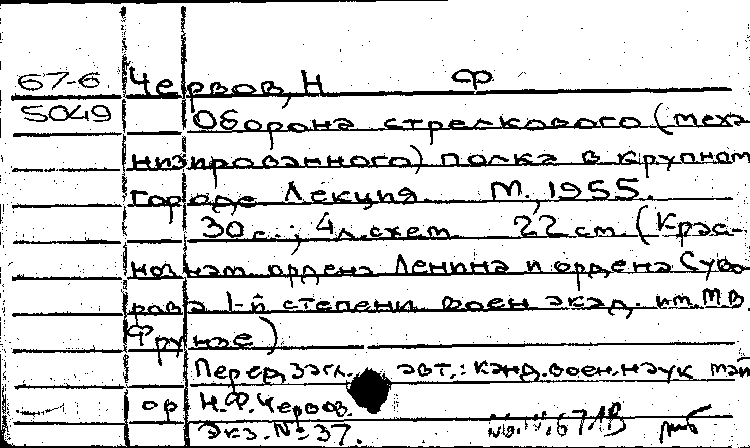 67-6 Червов, Н Ф
5049 Оборона стрелкового (меха
низированного) полка в крупном
городе Лекция. М., 1955.
30 с.; 4 л. схем. 22 см (Крас-
нознам ордена Ленина и ордена Суво
рова 1-й степени воен акад. им. М.В.
Фрунзе)
Перед загл. авт.: канд. воен. наук май
ор Н.Ф. Червов.
Экз. № 37.